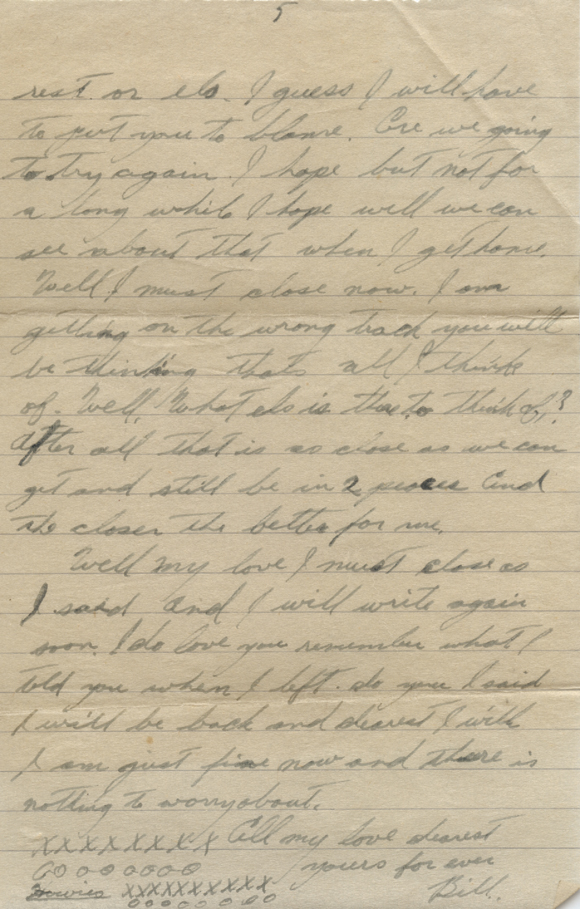 5
rest. or els. I guess I will have
to put you to blame. Are we going
to try again. I hope but not for
a long while I hope well we can
see about that when I get home.
Well I must close now. I am
getting on the wrong track you will
be thinking thats all I think
of. Well, What els is there to think of?
After all that is as close as we can
get and still be in 2 peaces And
the closer the better for me.
Well my love I must close as
I said And I will write again
soon. I do love you remember what I
told you when I left. do you I said
I will be back and dearest I will
I am just fine now and there is
nothing to worry about.
XXXXXXXX All my love dearest
OOOOOOOO yours for ever
XXXXXXXXXX Bill.
OOOOOOOO